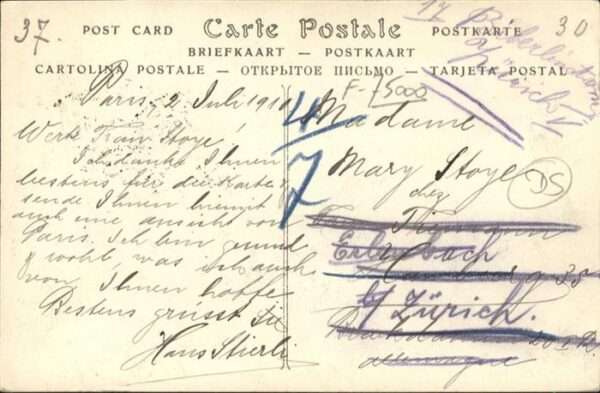 37.
POST CARD Carte Postale POSTKARTE
30
BRIEFKAART — POSTKAART
CARTOLINA POSTALE — ОТКРЫТОЕ ПИСЬМО — TARJETA POSTAL
F-75000
Paris, 2 Juli 191
Werte Frau Stoye!
Ich danke Ihnen
bestens für die Karte &
sende Ihnen hiemit
auch eine ansicht von
Paris. Ich bin gesund
wohl, was ich auch
von Ihnen hoffe
Bestens grüsst Sie
Hans Stierli
4
7
Madame
Mary Stoye
chez
DS
Erlenbach
35
b/ Zürich.
allemagne